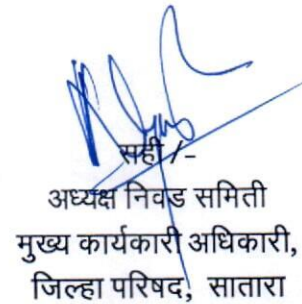 सही/-
अध्यक्ष निवड समिती
मुख्य कार्यकारी अधिकारी,
जिल्हा परिषद, सातारा